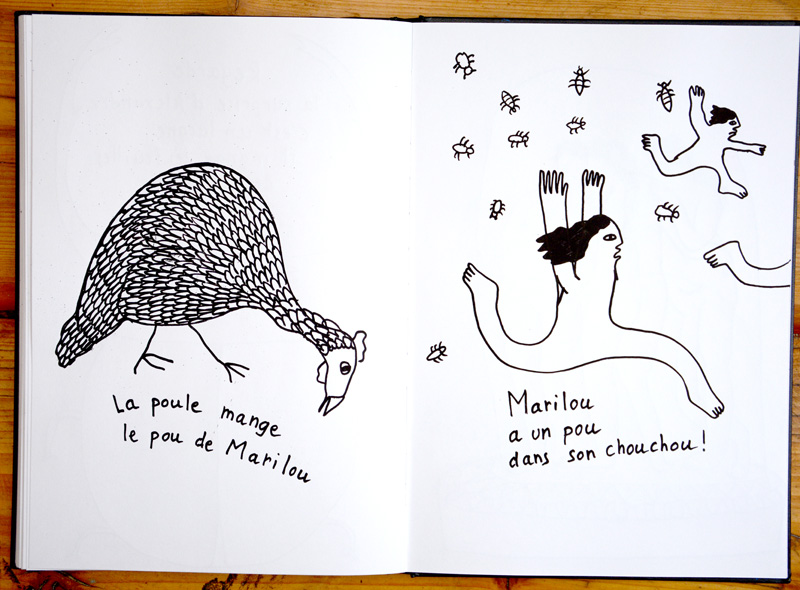 La poule mange
le pou de Marilou
Marilou
a un pou
dans son chouchou!